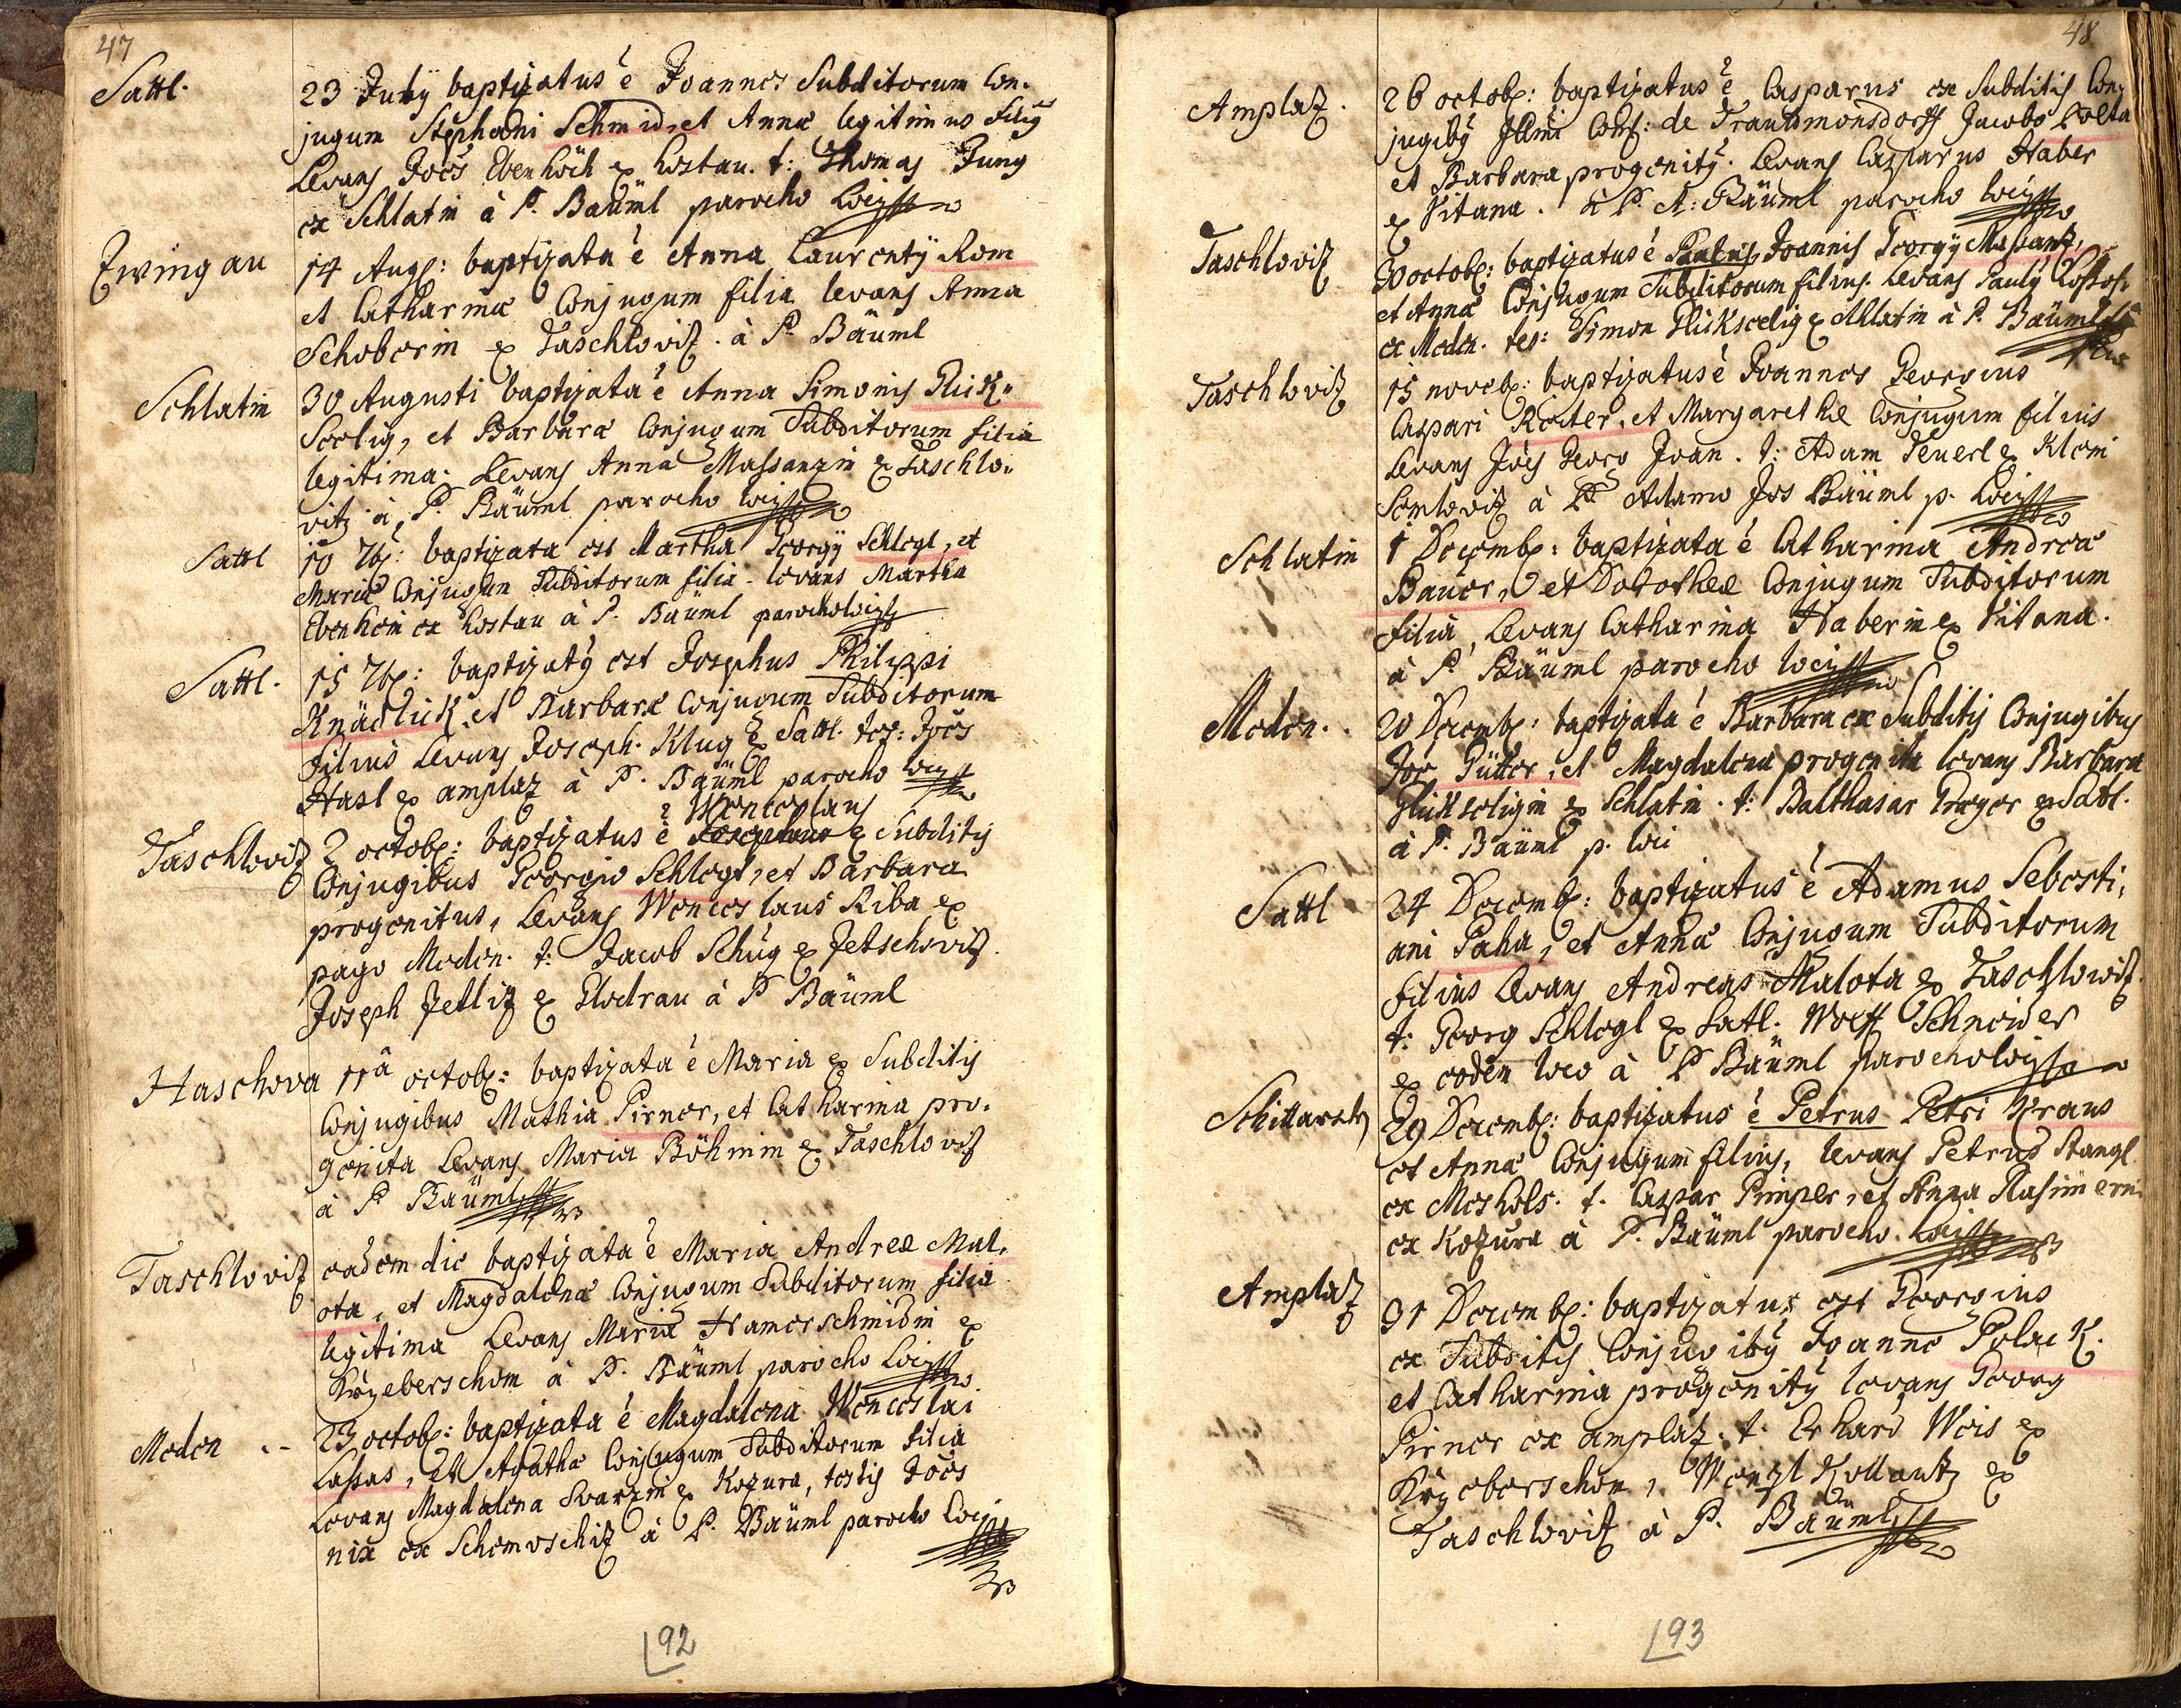 47
Sattl.
23 July baptizatus è Joannes Subditorum Con-
jugum Stephani Schmid, et Annæ legitimus filiꝰ
Levans Joēs Ebenhöch ex Lostau. t: Thomas Jung
ex Schlatin à P. Bäuml parocho loci
Zwingau
14 Aug: baptizata è Anna Laurentÿ Rom
et Catharinæ Conjugum filia levans Anna
Schoberin ex Taschlovitz. à P. Bäuml
Schlatin
30 Augusti baptizata è Anna Simonis Glück-
Seelig, et Barbaræ Conjugum Subditorum filia
legitima. Levans Anna Massanzin ex Taschlo-
vitz à P. Bäuml parocho loci
Sattl
10 7b: baptizata est Martha Georgÿ Schlegl, et
Mariæ Conjugum Subditorum filia. levans Martha
Ebenhein ex Lostau à P. Bäuml parocho loci
Sattl.
15 7b: baptizatꝰ est Josephus Philippi
Knädlick, et Barbaræ Conjugum Subditorum
filius Levans Joseph Klug ex Sattl. tes: Joēs
Hasl ex amplaz à P. Bäuml parocho loci
Wenceslaus
Taschlovitz
2 octob: baptizatus è Josephus ex Subditis
Conjugibus Georgio Schlegl, et Barbara
progenitus, Levans Wenceslaus Riba ex
pago Meden. t: Jacob Schug ex Jetschovitz.
Joseph Zetliz ex Glodrau à P. Bäuml
Haschova
11â octob: baptizata è Maria ex Subditis
Conjugibus Mathia Pirner, et Catharina pro-
genita Levans Maria Böhmin ex Taschlovitz
à P. Bäuml
Taschlovitz
eadem die baptizata è Maria Andreæ Mal-
ota, et Magdalenæ Conjugum Subditorum filia
legitima Levans Maria Hamerschmidin ex
Krzeberschem à P. Bäuml parocho loci
Meden
23 octob: baptizata è Magdalena Wenceslai
Lassas, et Agathæ Conjugum Subditorum filia
Levans Magdalena Svarzin ex Kozura, testis Joēs
nix ex Schemoschitz à P. Bäuml parocho loci
92
48
Amplatz.
26 octob: baptizatus è Casparus ex Subditis Con-
jugibꝰ Illmi Com: de Trautmonsdorff Jacobo Kolta
et Barbara progenitꝰ. Levans Casparus Haber
ex Vitana. à P. A: Bäuml parocho loci
Taschlovitz
30 octob: baptizatus è Joannis Georgÿ Massantz,
et Annæ Conjugum Subditorum filius. Levans Paulꝰ
ex Meden. tes: Simon Glückseelig ex Schlatin à P. Bäuml
Taschlovitz
15 noveb: baptizatus è Joannes Georgius
Caspari Reiter, et Margarethæ Conjugum filius
Levans Joēs Georg Joan. t: Adam Feuerl ex Klein
Semlovitz à P. Adamo Jos Bäuml p. loci
Schlatin
1 Decemb: baptizata è Catharina Andreæ
Bauer, et Dorotheæ Conjugum Subditorum
filia, Levans Catharina Haberin ex Vitana.
à P. Bäuml parocho loci
Meden.
20 Decemb: baptizata è Barbara ex Subditis Conjugibus
Joē Gütter, et Magdalena progenita levans Barbara
Glückseligin ex Schlatin. t: Balthasar Preger ex Satl.
à P. Bäuml p. loci
Sattl
24 Decemb: baptizatus è Adamus Sebasti-
ani Paha, et Annæ Conjugum Subditorum
filius Levans Andreas Malota ex Taschlowitz.
t: Georg Schlegl ex Satl. Wolff Schneider
ex eodem loco à P. Bäuml parocho loci
Schittarzn
29 Decemb: baptizatus è Petrus Petri Kraus
et Annæ Conjugum filius, levans Petrus Stangl
ex Meshols. t. Caspar Pimper, et Anna
ex Kozura à P. Bäuml parocho loci
Amplatz
31 Decemb: baptizatus est Georgius
ex Subditis Conjugibꝰ Joanne Polack.
et Catharina progenitꝰ levans Georg
Pirner ex amplatz. t. Erhard Weis ex
Krzeberschem, Wenzl Kollautz ex
Taschlovitz à P. Bäuml
93